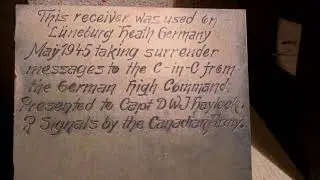 This receiver was used on
Lüneburg Heath Germany
May 1945 taking surrender
messages to the C-in-C from
the German High Command.
Presented to Capt D.W.J Haylock.
R Signals by the Canadian Army.